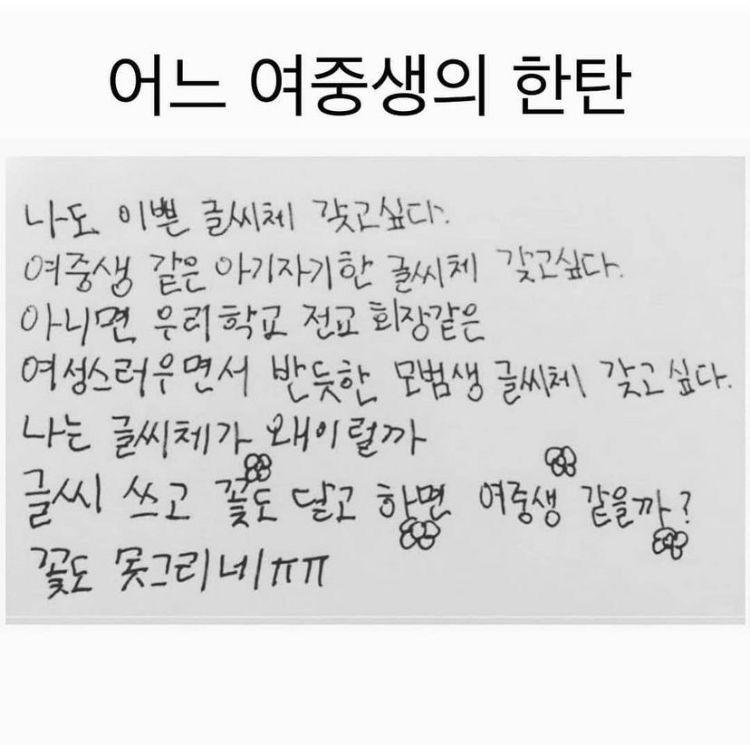 어느 여중생의 한탄
나도 이쁜 글씨체 갖고싶다.
여중생 같은 아기자기한 글씨체 갖고싶다.
아니면 우리학교 전교 회장같은
여성스러우면서 반듯한 모범생 글씨체 갖고싶다.
나는 글씨체가 왜이럴까
글씨 쓰고 꽃도 달고 하면 여중생 같을까?
꽃도 못그리네ㅠㅠ